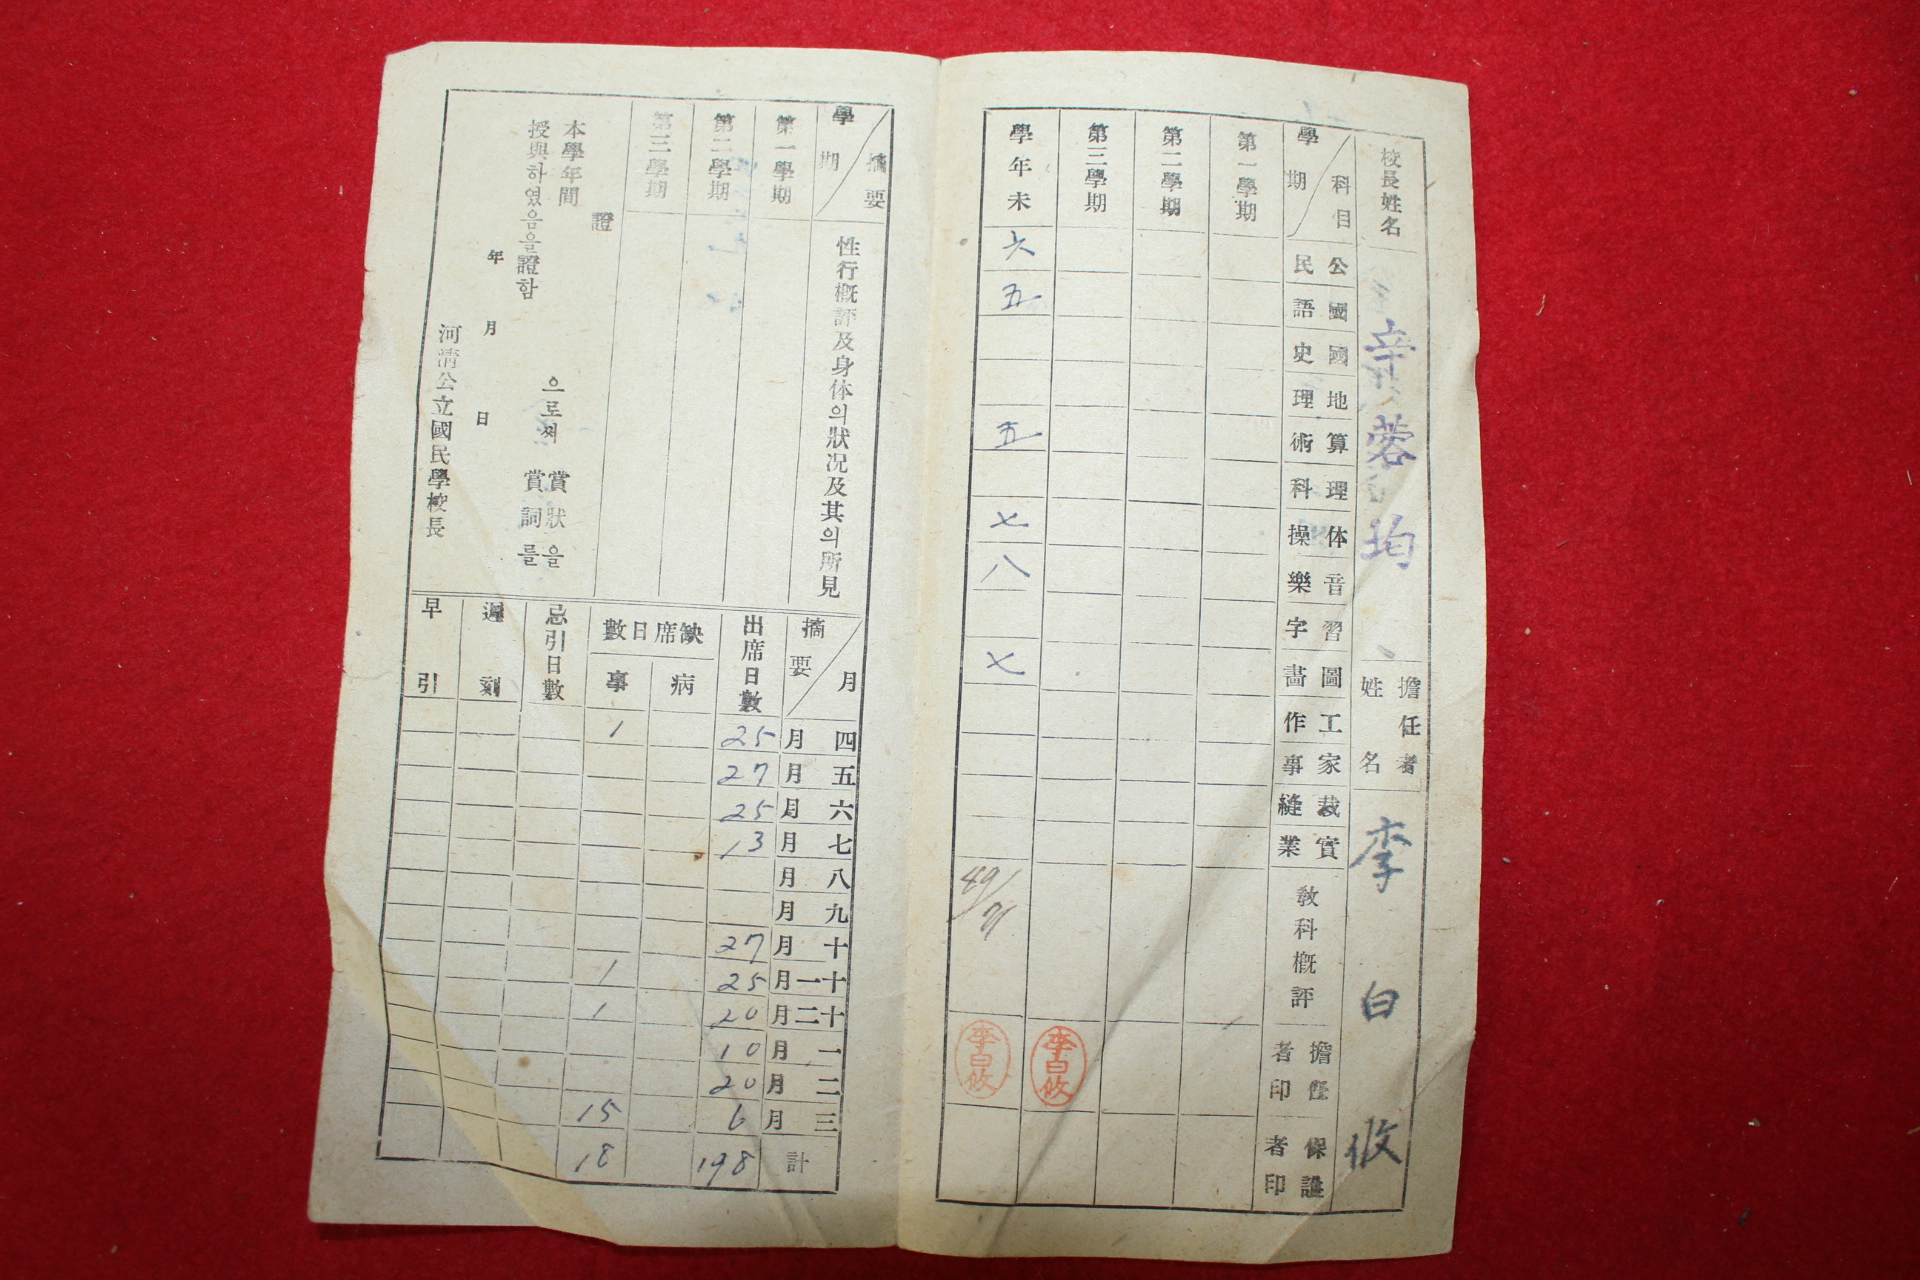 校長姓名
辛
蓉
均
擔任者
姓名
李白攸
學期 科目
公民
國語
國史
地理
算術
理科
体操
音樂
習字
圖畵
工作
家事
裁縫
實業
敎科概評
擔任者印
保證者印
第一學期
第二學期
第三學期
李白攸
學年末
六
五
五
七
八
七
49/7
李白攸
學期 摘要
性行概評及身体의狀况及其의所見
第一學期
第二學期
第三學期
證
本學年間
으로써 賞狀을
賞詞를
授與하였음을證함
年 月 日
河淸公立國民學校長
月 摘要
出席日數
缺席日數
病
事
忌引日數
遲刻
早引
四月 25 1
五月 27
六月 25
七月 13
八月
九月
十月 27
十一月 25 1
十二月 20 1
一月 10
二月 20
三月 6 15
計 198 18